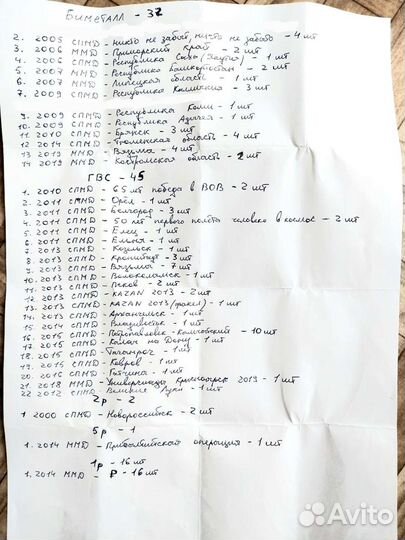 Биметалл - 32
2. 2005 СПМД - никто не забыт, ничто не забыто - 4 шт
3. 2006 ММД - Приморский край - 2 шт
4. 2006 СПМД - Республика Саха (Якутия) - 1 шт
5. 2007 ММД - Республика Башкортостан - 2 шт
6. 2007 ММД - Липецкая область - 1 шт
7. 2009 СПМД - Республика Калмыкия - 3 шт
9. 2009 СПМД - Республика Коми - 1 шт
10. 2009 СПМД - Республика Адыгея - 1 шт
11. 2010 СПМД - Брянск - 3 шт
12. 2014 СПМД - Тюменская область - 4 шт
13 2019 ММД - Вязьма - 4 шт
14 2019 ММД - Костромская область - 2 шт
ГВС - 45
1. 2010 СПМД - 65 лет победа в ВОВ - 2 шт
2. 2011 СПМД - Орёл - 1 шт
3. 2011 СПМД - Белгород - 3 шт
4. 2011 СПМД - 50 лет первого полёта человека в космос - 2 шт
5. 2011 СПМД - Елец - 1 шт
6. 2011 СПМД - Ельня - 1 шт
7. 2013 СПМД - Козельск - 1 шт
8. 2013 СПМД - Кронштадт - 3 шт
9. 2013 СПМД - Вязьма - 7 шт
10. 2013 СПМД - Волоколамск - 1 шт
11. 2013 СПМД - Псков - 2 шт
12. 2013 СПМД - KAZAN 2013 - 2 шт
13. 2013 СПМД - KAZAN 2013 (факел) - 1 шт
14. 2013 СПМД - Архангельск - 1 шт
15. 2014 СПМД - Владивосток - 1 шт
16. 2015 СПМД - Петропавловск-Камчатский - 10 шт
17. 2015 СПМД - Калач на Дону - 1 шт
18. 2015 СПМД - Таганрог - 1 шт
19. 2015 СПМД - Ковров - 1 шт
20. 2016 СПМД - Гатчина - 1 шт
21. 2018 ММД - Универсиада Красноярск 2019 - 1 шт
22 2012 СПМД - Великие Луки - 1 шт
2р - 2
1 2000 СПМД - Новороссийск - 2 шт
5р - 1
1. 2014 ММД - Прибалтийская операция - 1 шт
1р - 16 шт
1. 2014 ММД - ₽ - 16 шт
Avito